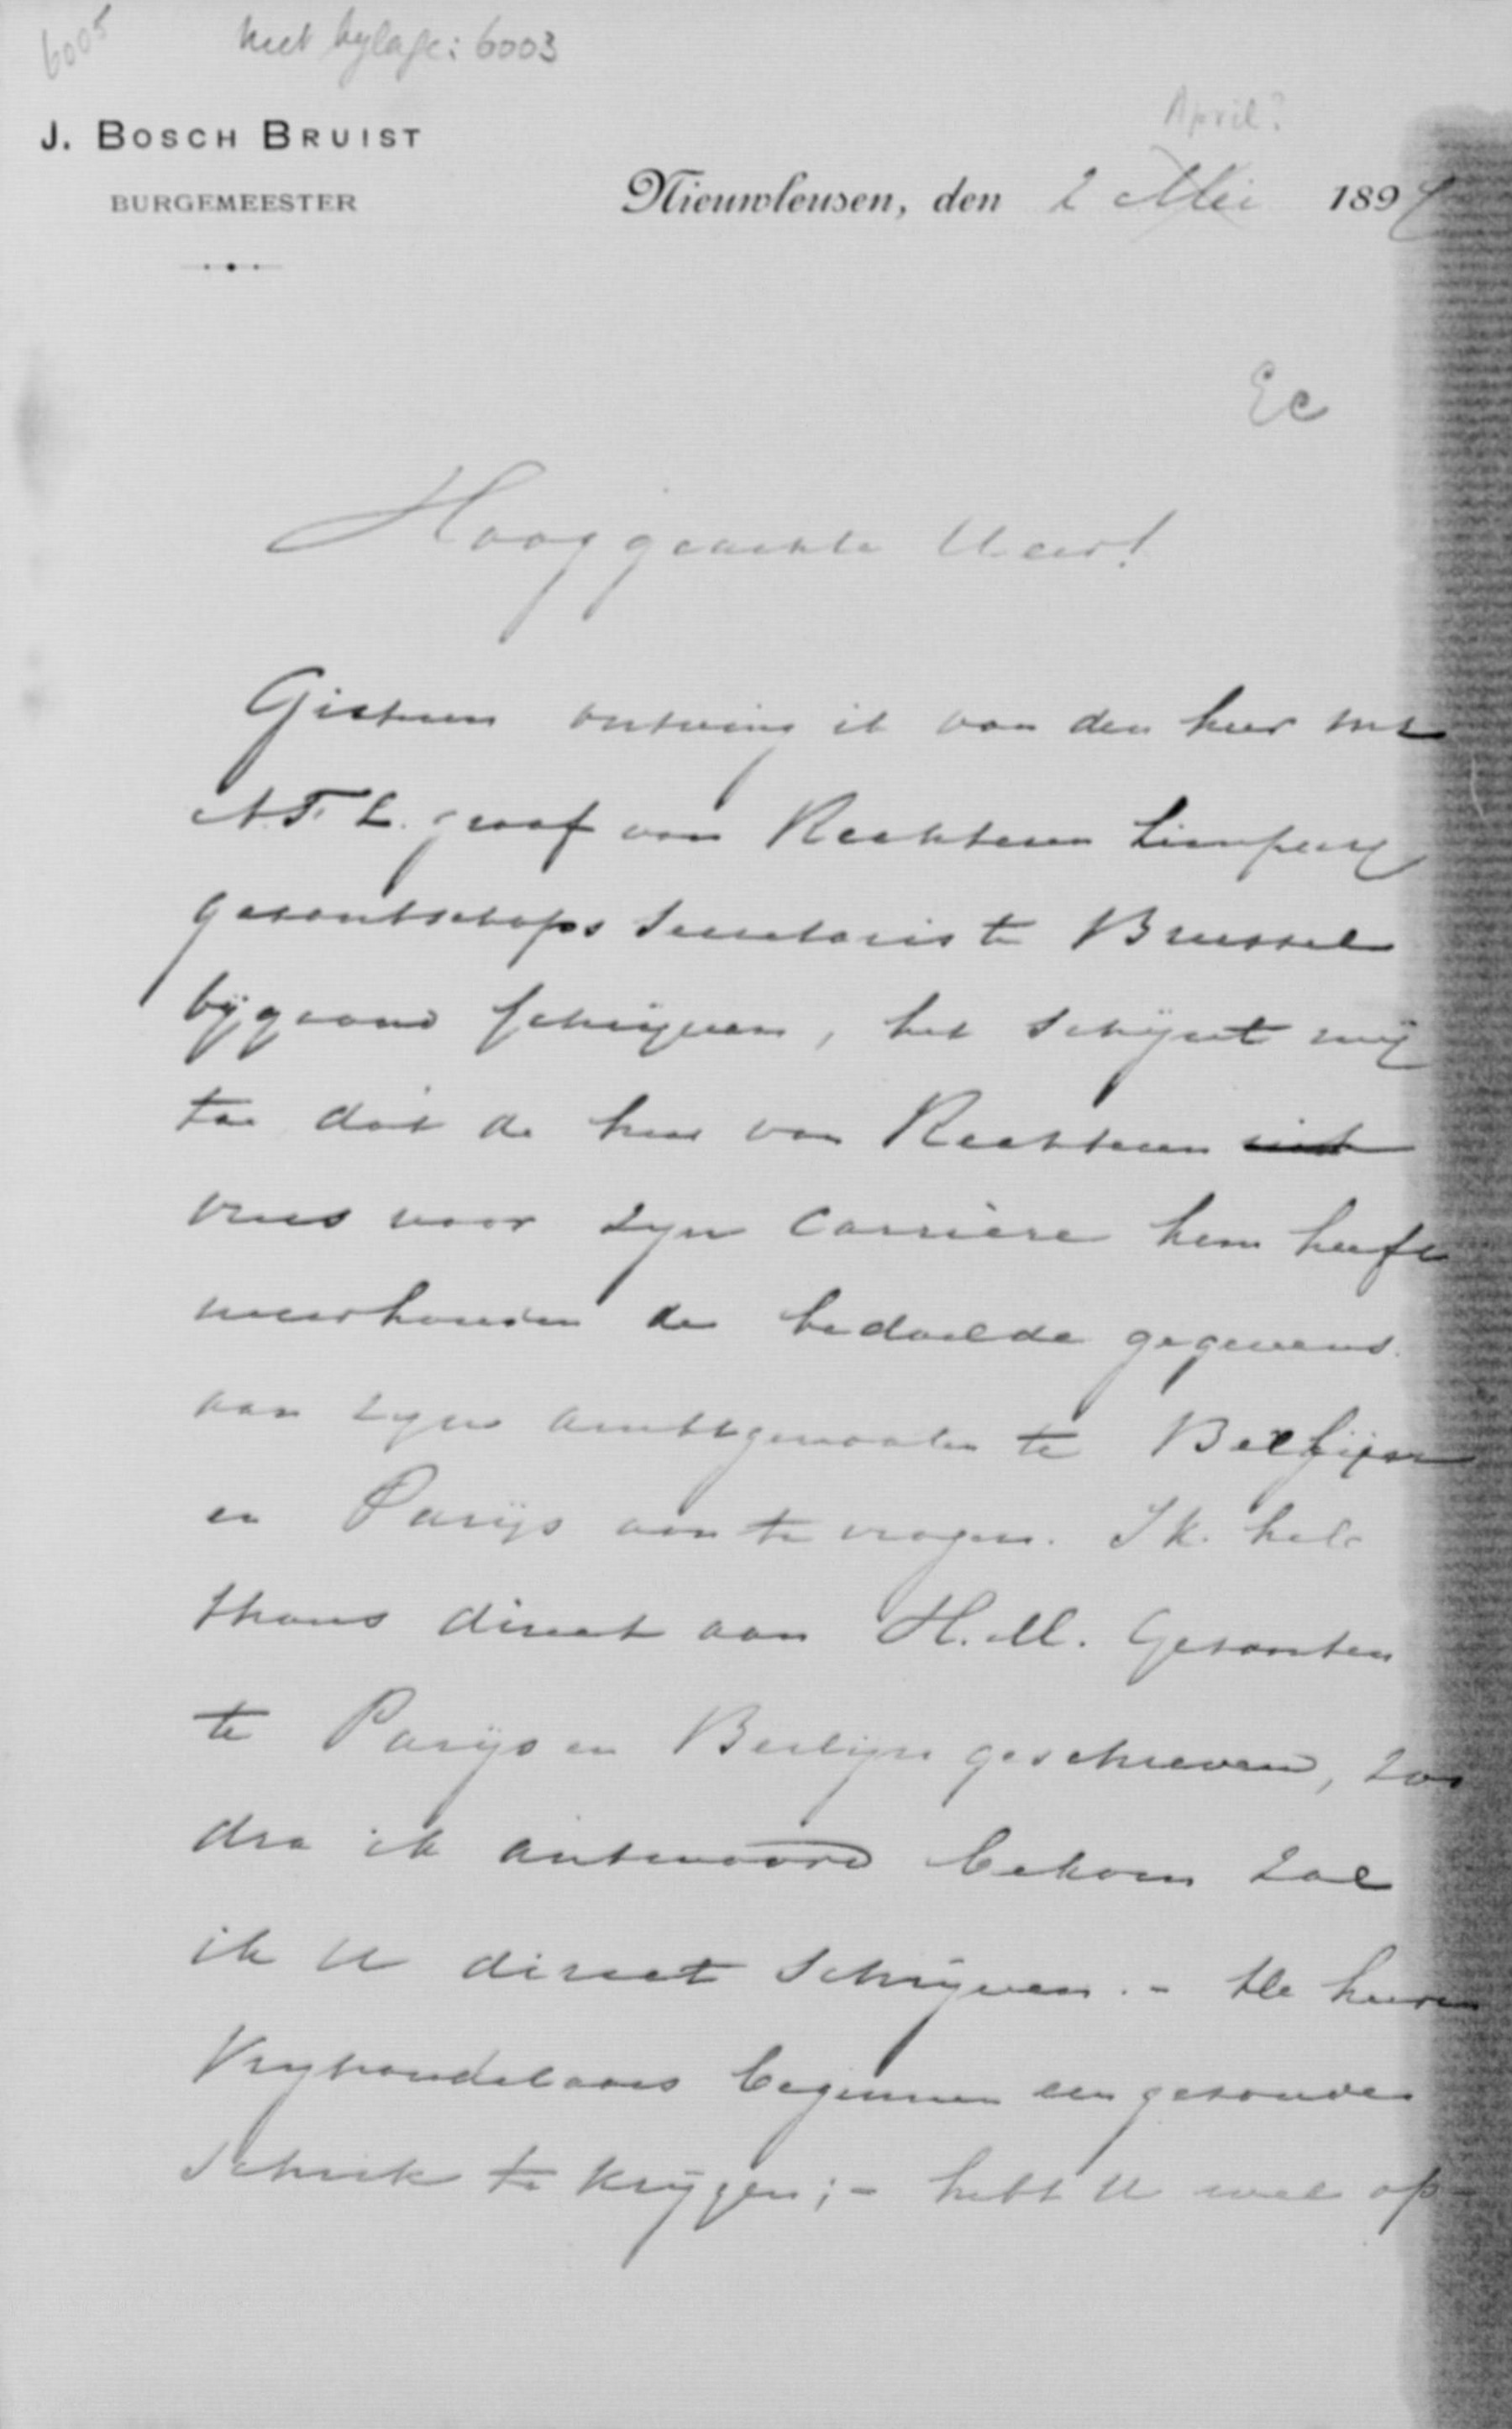 6005
met bylage: 6003
April?
J. BOSCH BRUIST
BURGEMEESTER
Nieuwleusen, den 2 Mei 1897
Ec
Hooggeachte Heer!
Gisteren ontving ik van den heer Mr
A.F.L. graaf van Rechteren Limpurg
gezantschaps secretaris te Brussel
bijgaand schrijven, het schijnt mij
toe dat de heer van Rechteren niet
vrees voor zyn carrière hem heeft
weerhouden de bedoelde gegevens
aan zyne ambtgenooten te Berlijn
en Parijs aan te vragen. Ik heb
thans direct aan H.M. Gezanten
te Parijs en Berlijn geschreven, zoo
dra ik antwoord bekom zal
ik U direct schrijven. - De heeren
Vryhandelaars beginnen een gezonde
schrik te krijgen; - hebt U wel op-